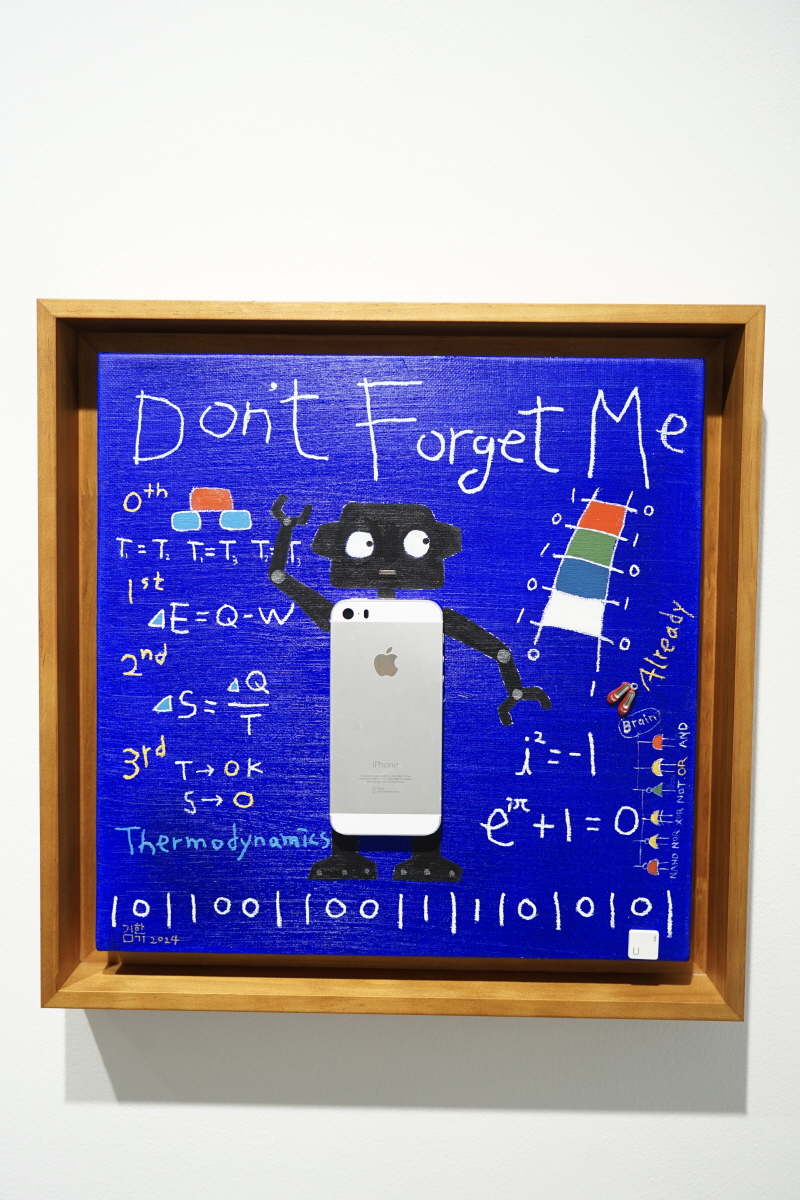 Don't Forget Me
0th
T₁=T₂ T₁=T₃ T₂=T₃
1st
△E=Q-W
2nd
△S=△Q/T
3rd
T→0K
S→0
Thermodynamics
1 0
0 1
1 0
0 1
1 0
0 1
Already
Brain
i²=-1
e^iπ+1=0
NAND NOR XOR NOT OR AND
iPhone
10110011001111010101
김한기 2024
U